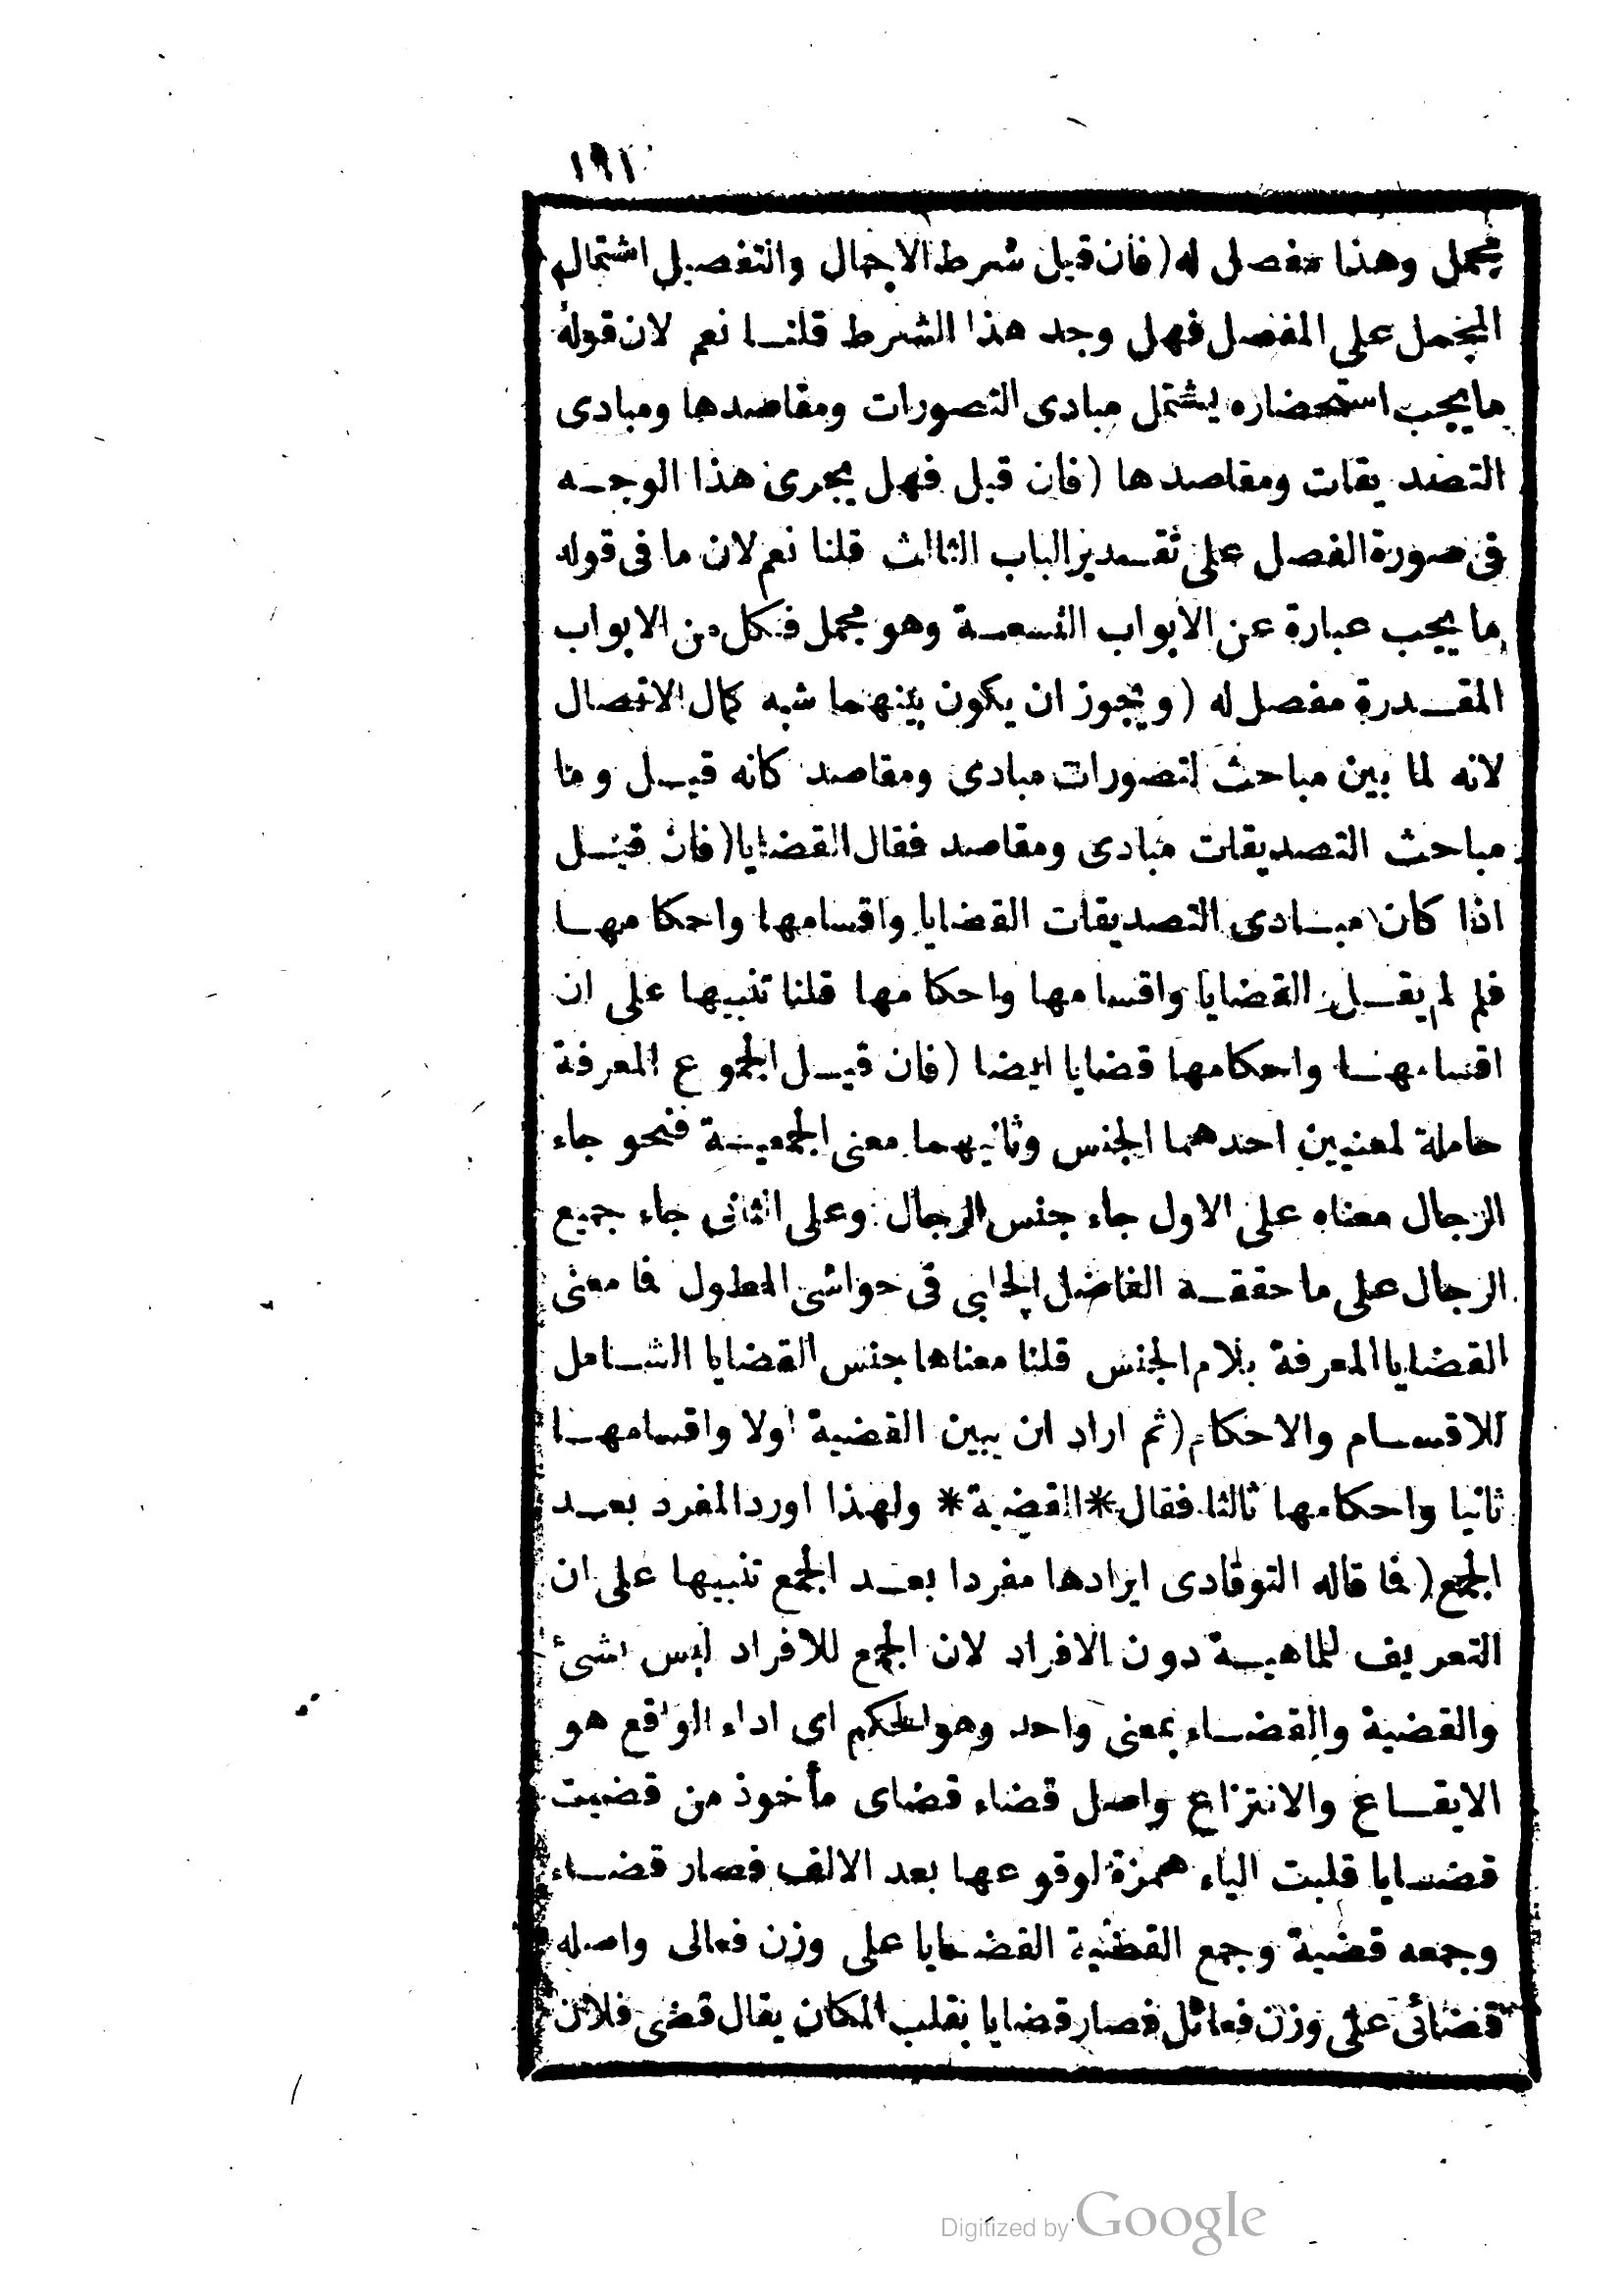 ١٩١
مجمل وهذا مفصل له (فان قيل شرط الاجمال والتفصيل اشتمال
المجمل على المفصل فهل وجد هذا الشرط قلنا نعم لان قوله
ما يجب استحضاره يشتمل مبادى التصورات ومقاصدها ومبادى
التصديقات ومقاصدها (فان قيل فهل يجرى هذا الوجه
فى صورة الفصل على تقدير الباب الثالث قلنا نعم لان ما فى قوله
ما يجب عبارة عن الابواب التسعة وهو مجمل فكل من الابواب
المقدرة مفصل له (ويجوز ان يكون بينهما شبه كمال الاتصال
لانه لما بين مباحث التصورات مبادى ومقاصد كانه قيل وما
مباحث التصديقات مبادى ومقاصد فقال القضايا (فان قيل
اذا كان مبادى التصديقات القضايا واقسامها واحكامها
فلم لم يقل القضايا واقسامها واحكامها قلنا تنبيها على ان
اقسامها واحكامها قضايا ايضا (فان قيل الجموع المعرفة
حاملة لمعنيين احدهما الجنس وثانيهما معنى الجمعية فنحو جاء
الرجال معناه على الاول جاء جنس الرجال وعلى الثانى جاء جميع
الرجال على ما حققه الفاضل الچلبى فى حواشى المطول فما معنى
القضايا المعرفة بلام الجنس قلنا معناها جنس القضايا الشامل
للاقسام والاحكام (ثم اراد ان يبين القضية اولا واقسامها
ثانيا واحكامها ثالثا فقال *القضية* ولهذا اورد المفرد بعد
الجمع (فما قاله التوقادى ايرادها مفردا بعد الجمع تنبيها على ان
التعريف للماهية دون الافراد لان الجمع للافراد ليس بشئ
والقضية والقضاء بمعنى واحد وهو الحكم اى اداء الواقع هو
الايقاع والانتزاع واصل قضاء قضاى مأخوذ من قضيت
قضايا قلبت الياء همزة لوقوعها بعد الالف فصار قضاء
وجمعه قضية وجمع القضية القضايا على وزن فعالى واصله
قضائى على وزن فعائل فصار قضايا بقلب المكان يقال قضى فلان
Digitized by Google